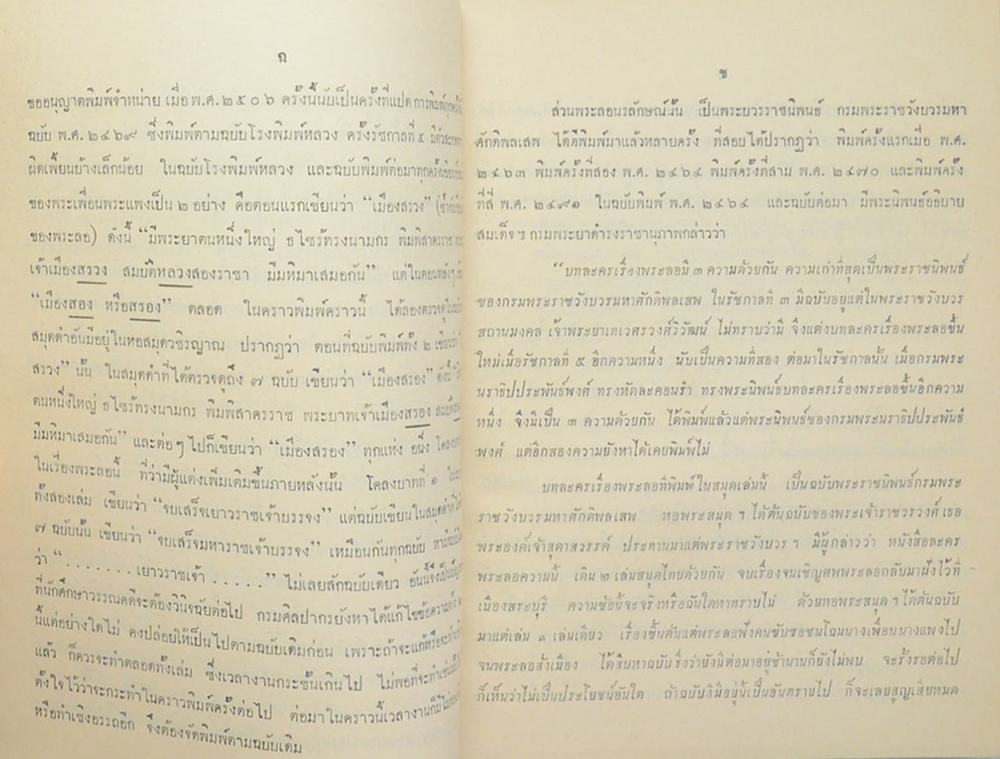 ฉ
ขออนุญาตพิมพ์จำหน่าย เมื่อ พ.ศ. ๒๕๐๖ ครั้งนี้นับเป็นครั้งที่แปด การพิมพ์
ฉบับ พ.ศ. ๒๔๖๙ ซึ่งพิมพ์ตามฉบับโรงพิมพ์หลวง ครั้งรัชกาลที่ ๕
ผิดเพี้ยนบ้างเล็กน้อย ในฉบับโรงพิมพ์หลวง และฉบับพิมพ์ต่อมาทุกครั้ง
ของพระเพื่อนพระแพงเป็น ๒ อย่าง คือตอนแรกเขียนว่า “เมืองสรวง”
ของพระลอ) ดังนี้ “มีพระยาตนหนึ่งใหญ่ ธไซร้ทรงนามกร พิมพิสาครราช
เจ้าเมืองสรวง สมบัติหลวงสองราชา มีมหิมาเสมอกัน” แต่ในตอนหลังๆ
“เมืองสอง หรือสรอง” ตลอด ในคราวพิมพ์คราวนี้ ได้ลองตรวจดู
สมุดดำอันมีอยู่ในหอสมุดวชิรญาณ ปรากฏว่า ตอนที่ฉบับพิมพ์ทั้ง ๒
สรวง” นั้น ในสมุดดำที่ได้ตรวจดูถึง ๗ ฉบับ เขียนว่า “เมืองสรอง” ดังนี้
ตนหนึ่งใหญ่ ธไซร้ทรงนามกร พิมพิสาครราช พระบาทเจ้าเมืองสรอง
มีมหิมาเสมอกัน” และต่อๆ ไปก็เขียนว่า “เมืองสรอง” ทุกแห่ง อนึ่ง
ในเรื่องพระลอนี้ ที่ว่ามีผู้แต่งเพิ่มเติมขึ้นภายหลังนั้น โคลงบาทที่ ๑
ทั้งสองเล่ม เขียนว่า “จบเสร็จเยาวราชเจ้าบรรจง” แต่ฉบับเขียนในสมุดดำ
๗ ฉบับนั้น เขียนว่า “จบเสร็จมหาราชเจ้าบรรจง” เหมือนกันทุกฉบับ
ว่า “. . . . . . . เยาวราชเจ้า . . . . .” ไม่เลยสักฉบับเดียว
ที่นักศึกษาวรรณคดีจะต้องวินิจฉัยต่อไป กรมศิลปากรยังหาได้แก้ไขข้อความ
นี้แต่อย่างใดไม่ คงปล่อยให้เป็นไปตามฉบับเดิมก่อน เพราะถ้าจะแก้
แล้ว ก็ควรจะทำตลอดทั้งเล่ม ซึ่งเวลางานกระชั้นเกินไป ไม่พอที่จะทำ
ตั้งใจไว้ว่าจะกระทำในคราวพิมพ์ครั้งต่อไป ต่อมาในคราวนี้เวลางานก็มี
หรือทำเชิงอรรถอีก จึงต้องจัดพิมพ์ตามฉบับเดิม
ช
ส่วนพระลอนรลักษณ์นั้น เป็นพระบวรราชนิพนธ์ กรมพระราชวังบวรมหา
ศักดิพลเสพ ได้ตีพิมพ์มาแล้วหลายครั้ง ที่สอบได้ปรากฏว่า พิมพ์ครั้งแรกเมื่อ พ.ศ.
๒๔๖๓ พิมพ์ครั้งที่สอง พ.ศ. ๒๔๖๔ พิมพ์ครั้งที่สาม พ.ศ. ๒๔๗๐ และพิมพ์ครั้ง
ที่สี่ พ.ศ. ๒๔๙๑ ในฉบับพิมพ์ พ.ศ. ๒๔๖๔ และฉบับต่อมา มีพระนิพนธ์อธิบาย
สมเด็จฯ กรมพระยาดำรงราชานุภาพกล่าวว่า
“บทละครเรื่องพระลอมี ๓ ความด้วยกัน ความเก่าที่สุดเป็นพระราชนิพนธ์
ของกรมพระราชวังบวรมหาศักดิพลเสพ ในรัชกาลที่ ๓ มีฉบับอยู่แต่ในพระราชวังบวร
สถานมงคล เจ้าพระยาเทเวศรวงศ์วิวัฒน์ ไม่ทราบว่ามี จึงแต่งบทละครเรื่องพระลอขึ้น
ใหม่เมื่อรัชกาลที่ ๕ อีกความหนึ่ง นับเป็นความที่สอง ต่อมาในรัชกาลนั้น เมื่อกรมพระ
นราธิปประพันธ์พงศ์ ทรงหัดละคอนรำ ทรงพระนิพนธ์บทละครเรื่องพระลอขึ้นอีกความ
หนึ่ง จึงมีเป็น ๓ ความด้วยกัน ได้พิมพ์แล้วแต่พระนิพนธ์ของกรมพระนราธิปประพันธ์
พงศ์ แต่อีกสองความยังหาได้เคยพิมพ์ไม่
บทละครเรื่องพระลอที่พิมพ์ในสมุดเล่มนี้ เป็นฉบับพระราชนิพนธ์กรมพระ
ราชวังบวรมหาศักดิพลเสพ หอพระสมุด ฯ ได้ต้นฉบับของพระเจ้าราชวรวงศ์ เธอ
พระองค์เจ้าสุดาสวรรค์ ประทานมาแต่พระราชวังบวร ฯ มีผู้กล่าวว่า หนังสือละคร
พระลอความนี้ เดิม ๒ เล่มสมุดไทยด้วยกัน จบเรื่องจนเชิญศพพระลอกลับมาฝังไว้ที่
เมืองสระบุรี ความข้อนี้จะจริงหรือฉันใดหาทราบไม่ ด้วยหอพระสมุด ฯ ได้ต้นฉบับ
มาแต่เล่ม ๑ เล่มเดียว เรื่องขึ้นต้นแต่พระลอฟังคนขับซอชมโฉมนางเพื่อนนางแพงไป
จนพระลอสั่งเมือง ได้สืบหาฉบับซึ่งว่ายังมีต่อมาอยู่ช้านานก็ยังไม่พบ จะรั้งรอต่อไป
ก็เห็นว่าไม่เป็นประโยชน์อันใด ถ้าฉบับที่มีอยู่นี้เป็นอันตรายไป ก็จะเลยสูญเสียหมด